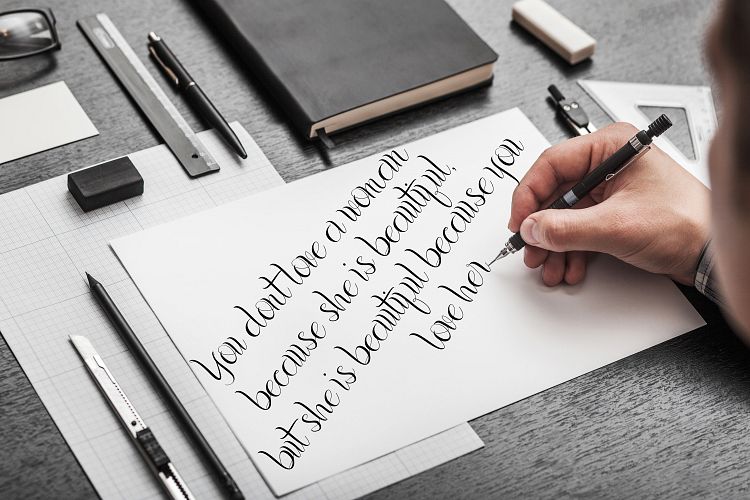 You dont love a woman
because she is beautiful,
but she is beautiful because you
love her